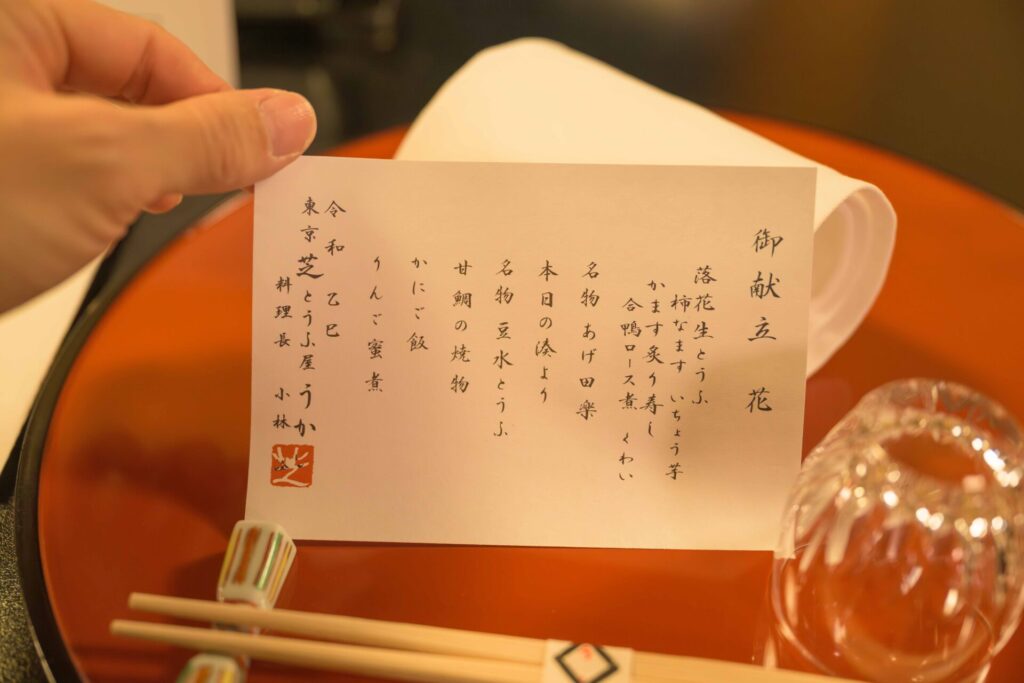 御献立 花
落花生とうふ
柿なます いちょう芋
かます炙り寿し
合鴨ロース煮 くわい
名物 あげ田楽
本日の湊より
名物 豆水とうふ
甘鯛の焼物
かにご飯
りんご蜜煮
令和 乙巳
東京芝とうふ屋うかい
料理長 小林
芝